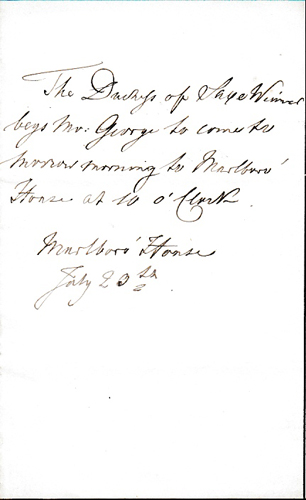 The Duchess of Saxe Weimar
begs Mr: George to come to
morrow morning to Marlboro'
House at 10 o'Clock.
Marlboro' House
July 23th.